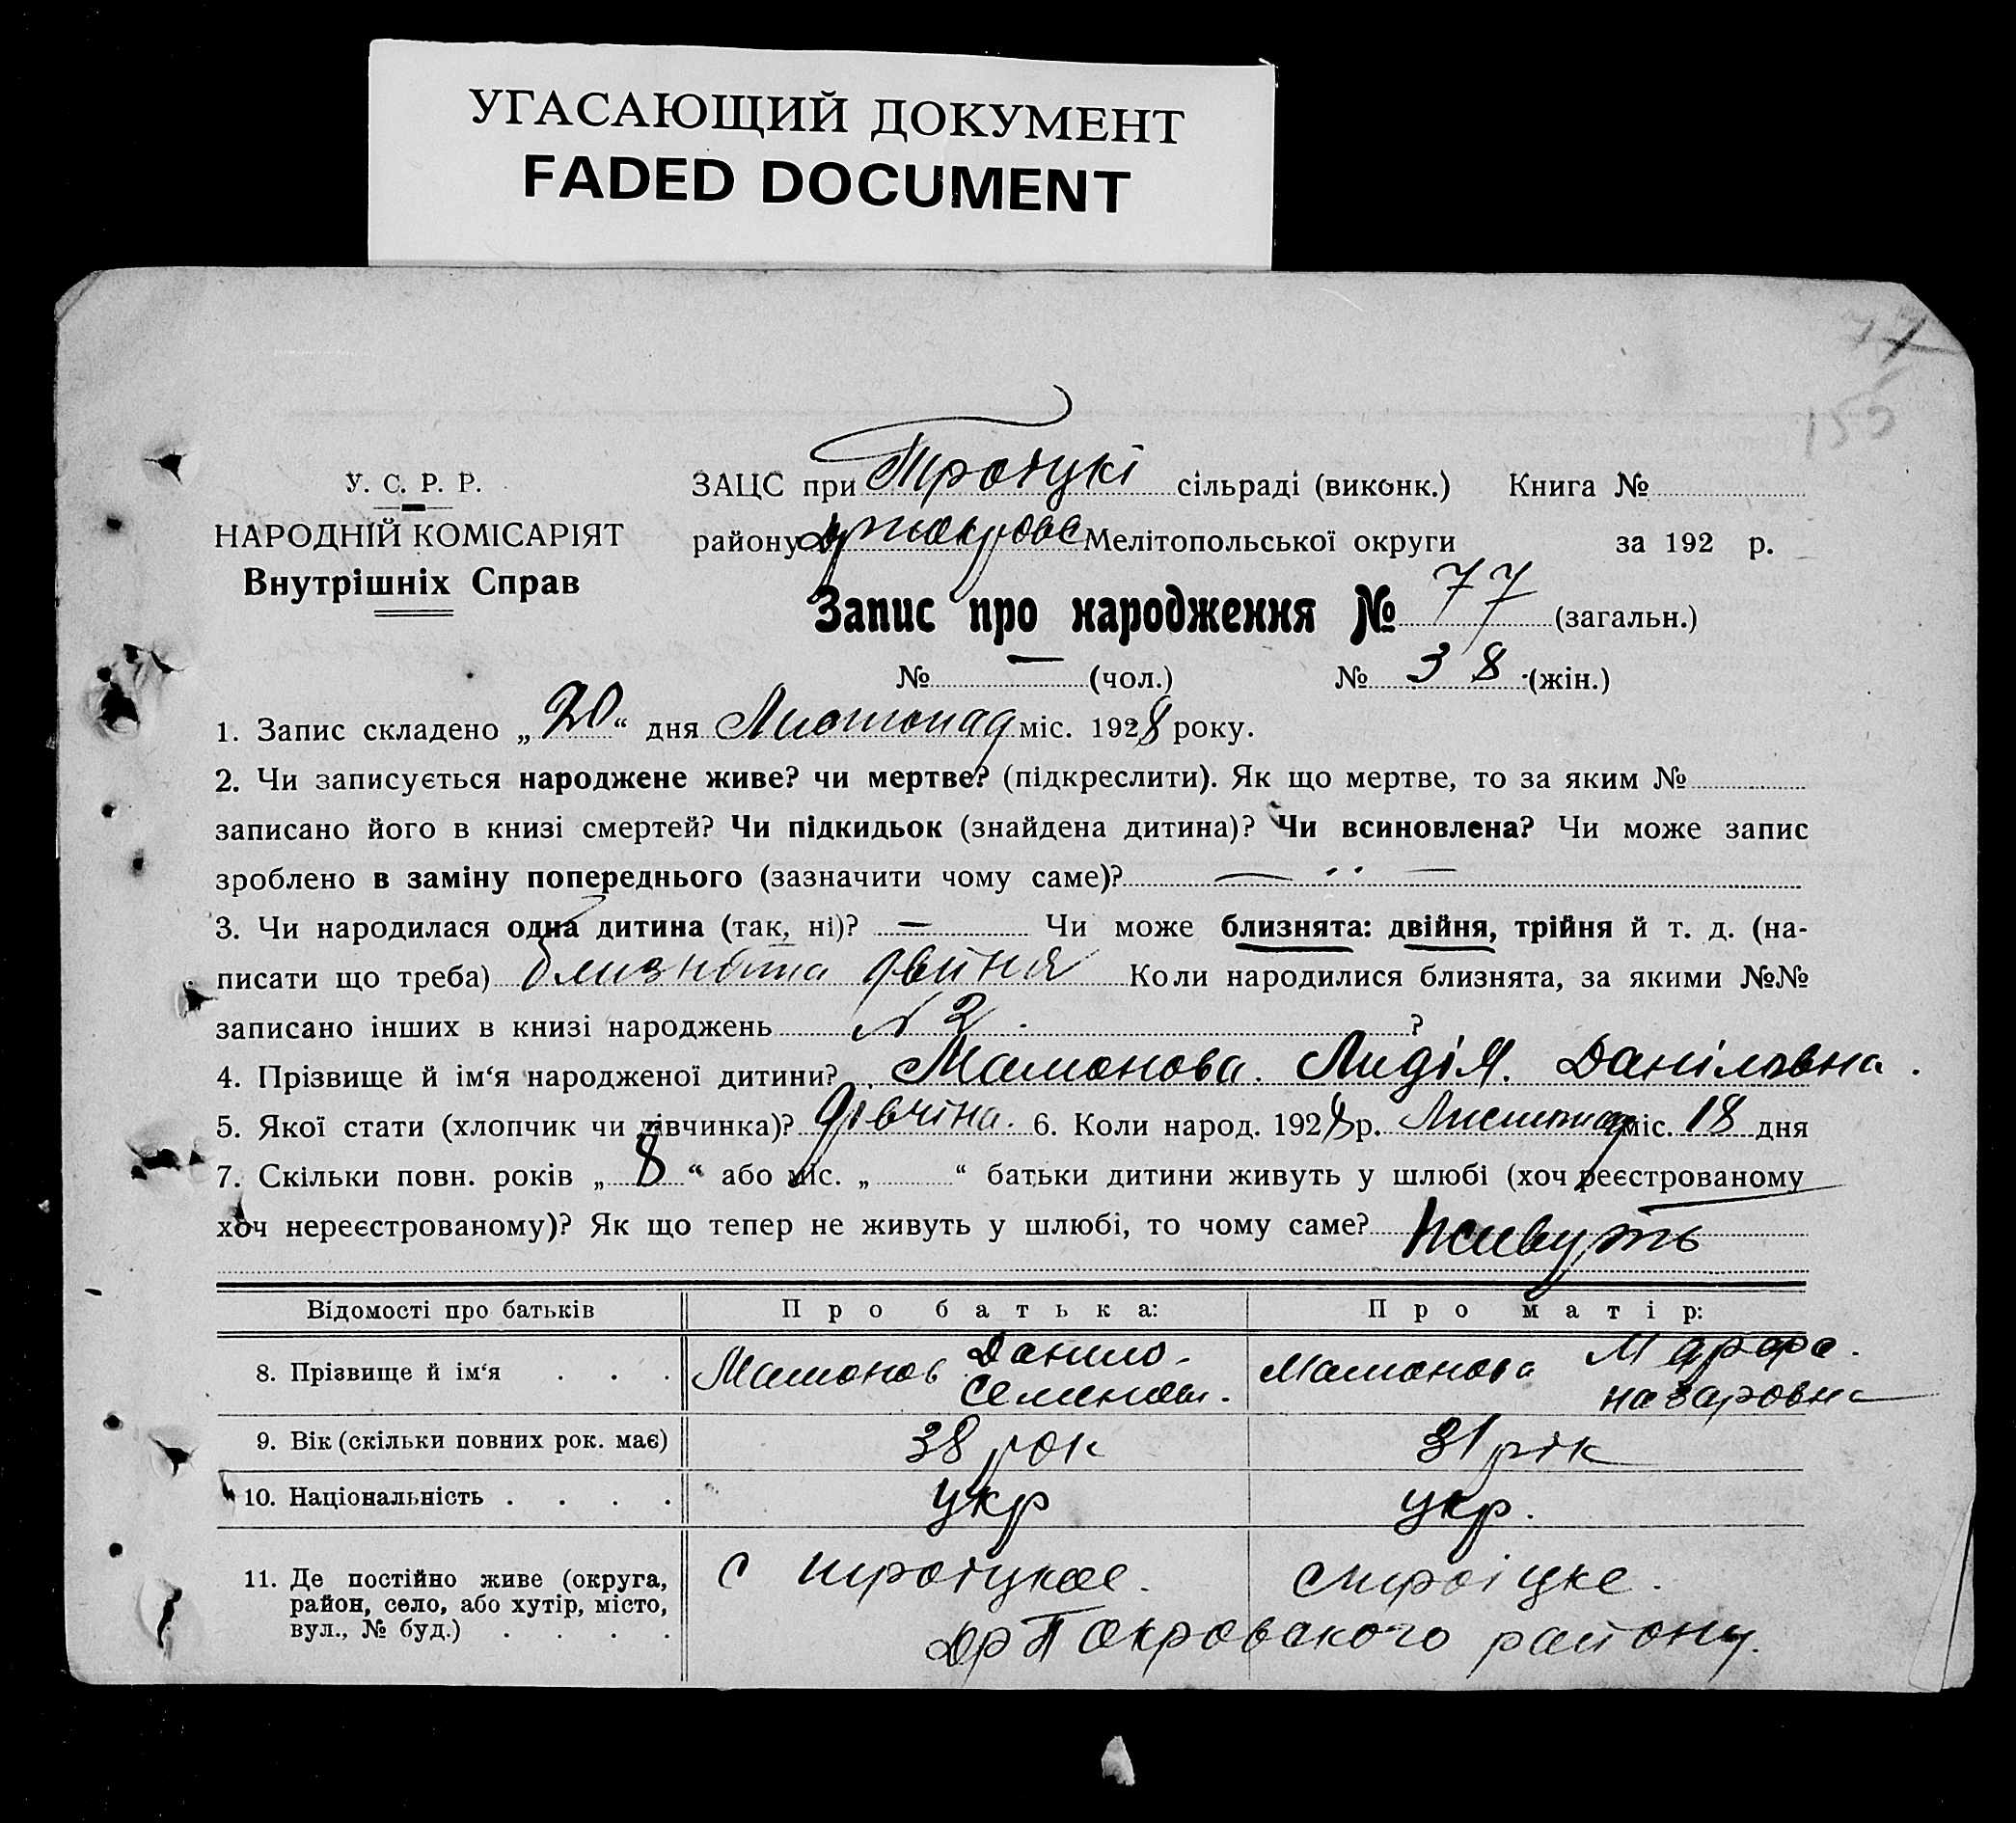 УГАСАЮЩИЙ ДОКУМЕНТ
FADED DOCUMENT
77
155
У. С. Р. Р.
НАРОДНІЙ КОМІСАРІЯТ
Внутрішніх Справ
ЗАЦС при Троїцкі сільраді (виконк.) Книга №
району Мелітопольської округи за 192 р.
Запис про народження № 77 (загальн.)
№ — (чол.) № 38 (жін.)
1. Запис складено „20“ дня Листопад міс. 1928 року.
2. Чи записується народжене живе? чи мертве? (підкреслити). Як що мертве, то за яким №
записано його в книзі смертей? Чи підкидьок (знайдена дитина)? Чи всиновлена? Чи може запис
зроблено в заміну попереднього (зазначити чому саме)? —
3. Чи народилася одна дитина (так, ні)? — Чи може близнята: двійня, трійня й т. д. (на-
писати що треба) близнята двйня Коли народилися близнята, за якими №№
записано інших в книзі народжень № 2 ?
4. Прізвище й ім‘я народженої дитини? Мамонова. Лидія. Даніловна.
5. Якої стати (хлопчик чи дівчинка)? дівчіна. 6. Коли народ. 1928 р. Листопад міс. 18 дня
7. Скільки повн. років „8“ або міс. „ “ батьки дитини живуть у шлюбі (хоч реєстрованому
хоч нереєстрованому)? Як що тепер не живуть у шлюбі, то чому саме? Живуть
Відомості про батьків Про батька: Про матір:
8. Прізвище й ім‘я . . . Мамонов Данило Мамонова Марфа.
Семенов. назаровна
9. Вік (скільки повних рок. має) 38 рок 31 рік
10. Національність . . . . укр укр.
11. Де постійно живе (округа,
район, село, або хутір, місто,
вул., № буд.) . . . .
с троїцкое. с троіцке.
Покровского району.